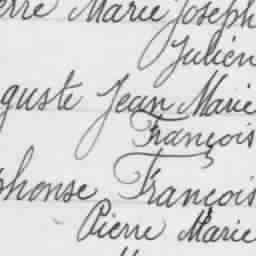 erre Marie Joseph
Julien
guste Jean Marie
François
phonse François
Pierre Marie